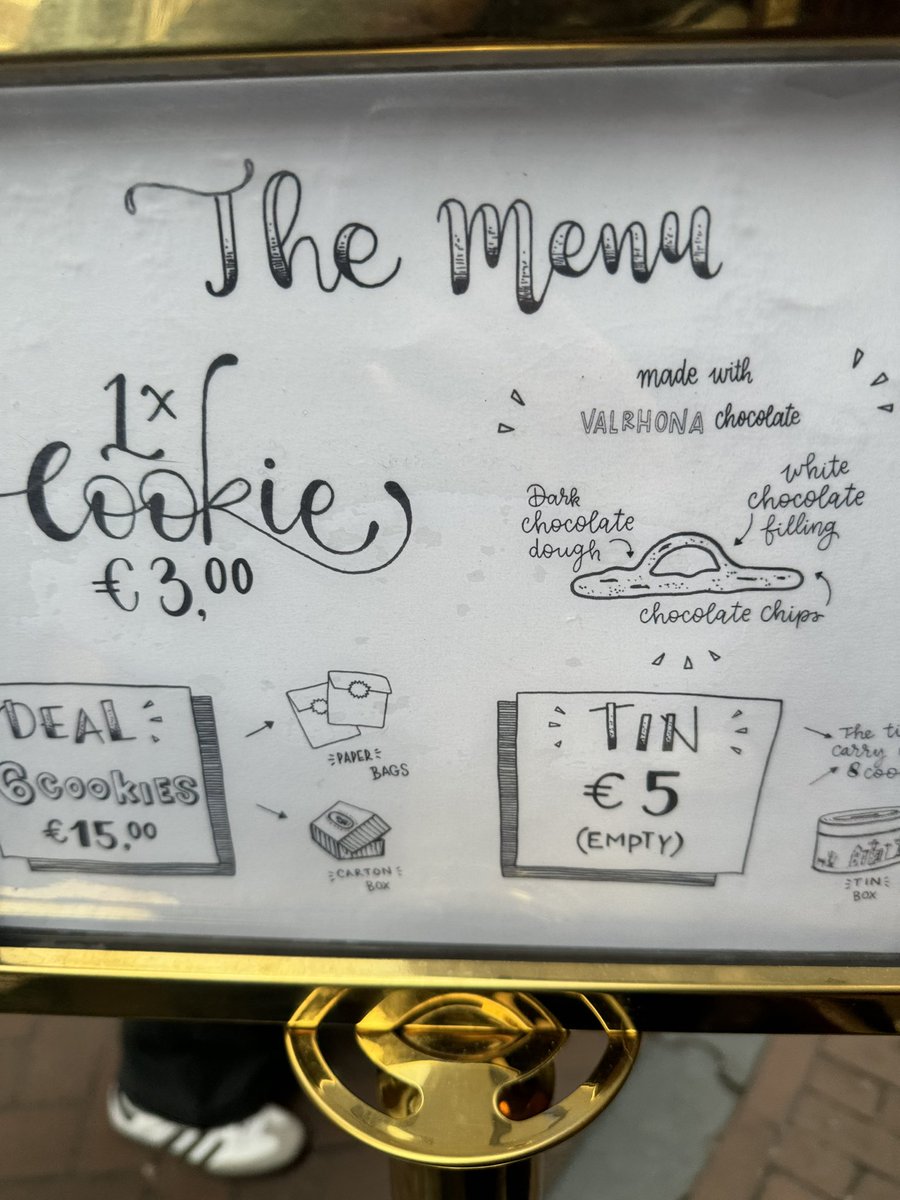 The Menu
1x
Cookie
€3,00
made with
VALRHONA chocolate
Dark
chocolate
dough
white
chocolate
filling
chocolate chips
DEAL
6 COOKIES
€15,00
PAPER
BAGS
CARTON
BOX
TIN
€5
(EMPTY)
The
carry
8
TIN
BOX